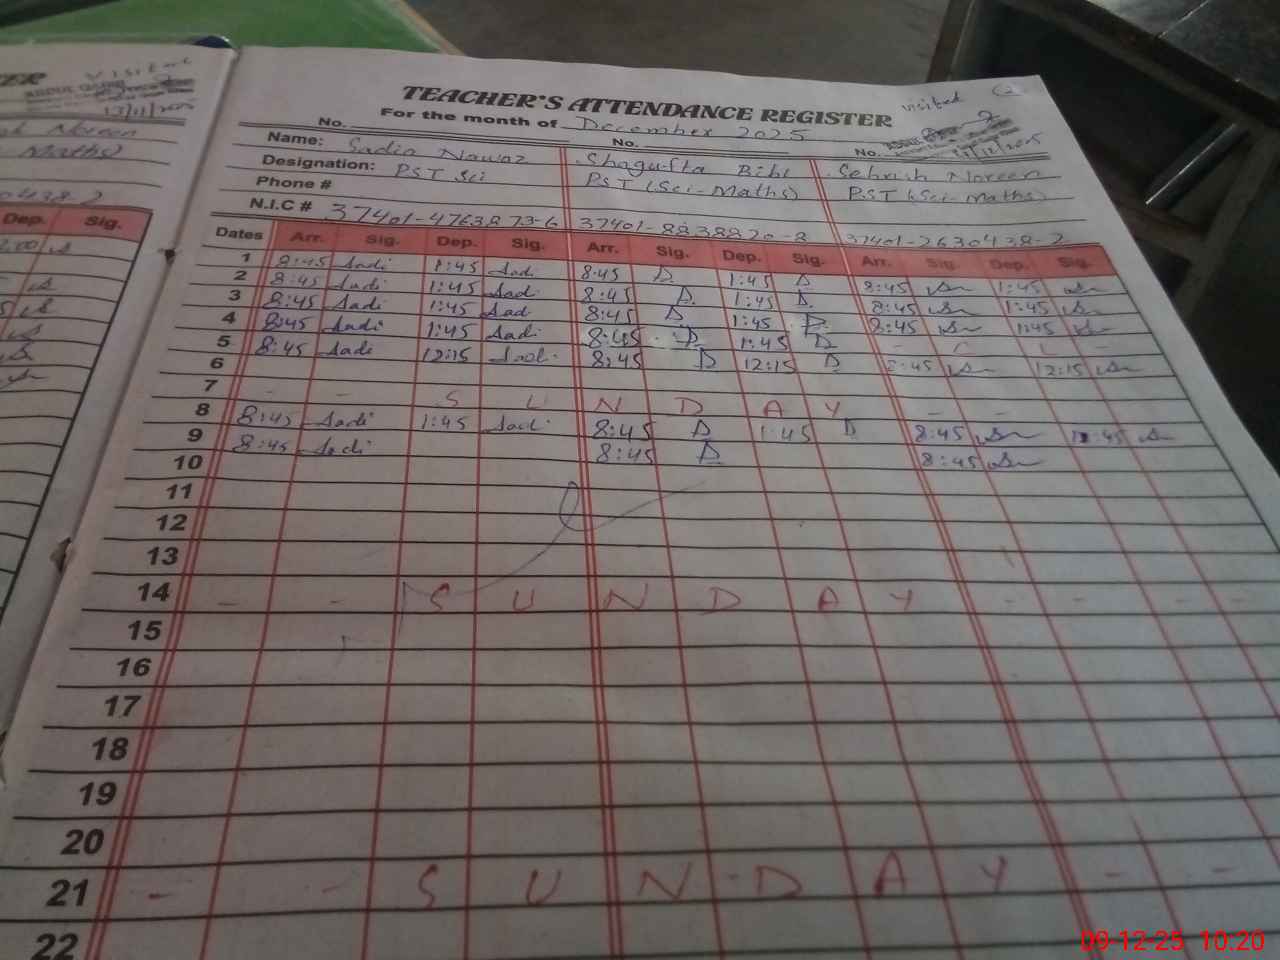 TER visited
ABDUL QADIR
13/11/2025
Noreen
Maths)
0438-2
Dep. Sig.
visited
TEACHER'S ATTENDANCE REGISTER
For the month of December 2025
No. No. No.
Name: Sadia Nawaz Shagufta Bibi Sehrish Noreen
Designation: PST Sci PST (Sci-Maths) PST (Sci-Maths)
Phone #
N.I.C # 37401-4763873-6 37401-8838820-8 37401-2630438-2
Dates Arr. Sig. Dep. Sig. Arr. Sig. Dep. Sig. Arr. Sig. Dep. Sig.
1 8:45 Sadi 1:45 Sadi 8:45 1:45 8:45 1:45
2 8:45 Sadi 1:45 Sadi 8:45 1:45 8:45 1:45
3 8:45 Sadi 1:45 Sadi 8:45 1:45 8:45 1:45
4 8:45 Sadi 1:45 Sadi 8:45 1:45
5 8:45 Sadi 12:15 Sadi 8:45 12:15 8:45 12:15
6
7 - - S U N D A Y - -
8 8:45 Sadi 1:45 Sadi 8:45 1:45 8:45 1:45
9 8:45 Sadi 8:45 8:45
10
11
12
13
14 - - S U N D A Y - - - -
15
16
17
18
19
20
21 - - S U N D A Y - -
22
09-12-25 10:20